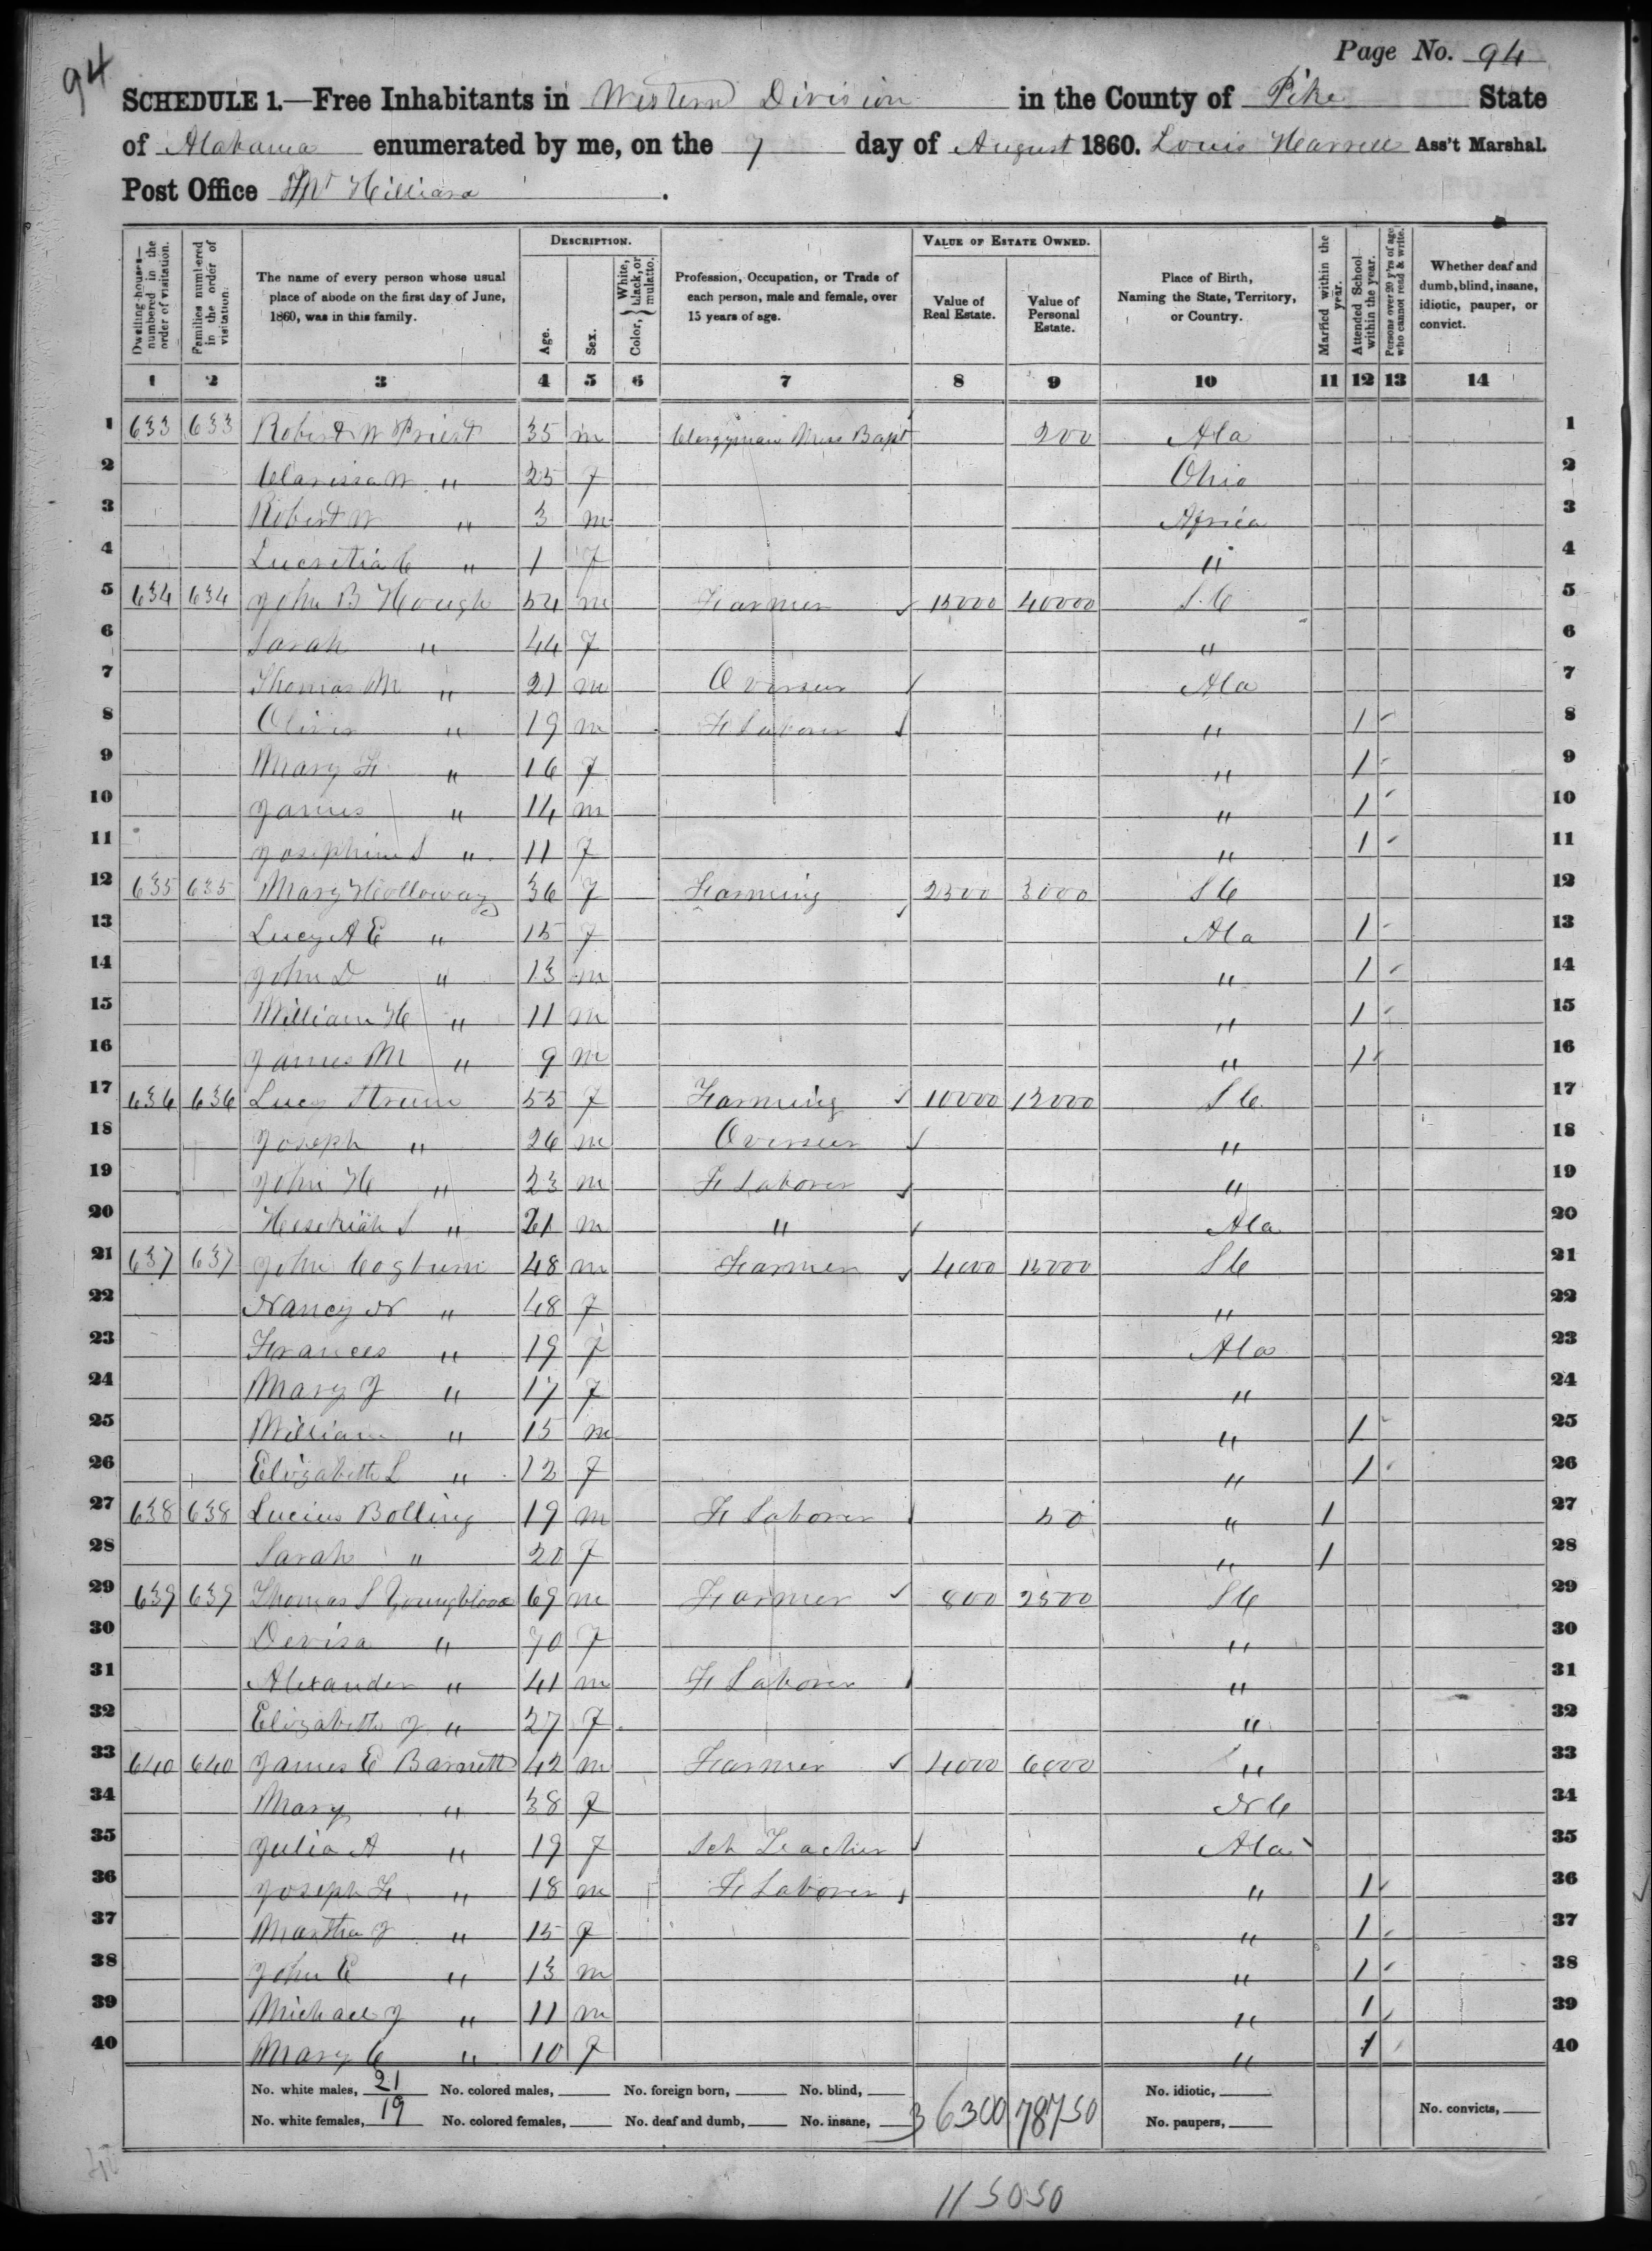 94
Page No. 94
SCHEDULE 1.—Free Inhabitants in Western Division in the County of Pike State
of Alabama enumerated by me, on the 7 day of August 1860. Louis Harrell Ass't Marshal.
Post Office Mt Hilliard.
DESCRIPTION. VALUE OF ESTATE OWNED.
Dwelling-houses—numbered in the order of visitation. Families numbered in the order of visitation. The name of every person whose usual place of abode on the first day of June, 1860, was in this family. Age. Sex. Color, {White, black, or mulatto. Profession, Occupation, or Trade of each person, male and female, over 15 years of age. Value of Real Estate. Value of Personal Estate. Place of Birth, Naming the State, Territory, or Country. Married within the year. Attended School within the year. Persons over 20 y'rs of age who cannot read & write. Whether deaf and dumb, blind, insane, idiotic, pauper, or convict.
1 2 3 4 5 6 7 8 9 10 11 12 13 14
1 633 633 Robert W Priest 35 m Clergyman Miss Bapt 200 Ala 1
2 Clarissa W " 25 f Ohio 2
3 Robert W " 3 m Africa 3
4 Lucretia C " 1 f " 4
5 634 634 John B Hough 54 m Farmer 15000 40000 S.C 5
6 Sarah " 44 f " 6
7 Thomas M " 21 m Overseer Ala 7
8 Oliver " 19 m F Laborer " 1 8
9 Mary F " 16 f " 1 9
10 James " 14 m " 1 10
11 Josephine S " 11 f " 1 11
12 635 635 Mary Holloway 36 f Farming 2500 3000 S C 12
13 Lucy A E " 15 f Ala 1 13
14 John D " 13 m " 1 14
15 William H " 11 m " 1 15
16 James M " 9 m " 1 16
17 636 636 Lucy 55 f Farming 10000 12000 S C 17
18 Joseph " 26 m Overseer " 18
19 John H " 23 m F Laborer " 19
20 Hesekiah S " 21 m " Ala 20
21 637 637 John Cogburn 48 m Farmer 4000 15000 S C 21
22 Nancy N " 48 f " 22
23 Frances " 19 f Ala 23
24 Mary J " 17 f " 24
25 William " 15 m " 1 25
26 Elizabeth L " 12 f " 1 26
27 638 638 Lucius Bolling 19 m F Laborer 50 " 1 27
28 Sarah " 20 f " 1 28
29 639 639 Thomas S Youngblood 69 m Farmer 800 2500 S C 29
30 Devisa " 70 f " 30
31 Alexander " 41 m F Laborer " 31
32 Elizabeth J " 27 f " 32
33 640 640 James E Barnett 42 m Farmer 4000 6000 " 33
34 Mary " 38 f N C 34
35 Julia A " 19 f Sch Teacher Ala 35
36 Joseph F " 18 m F Laborer " 1 36
37 Martha J " 15 f " 1 37
38 John E " 13 m " 1 38
39 Michael J " 11 m " 1 39
40 Mary C " 10 f " 1 40
No. white males, 21 No. colored males, No. foreign born, No. blind, 36300 78750 No. idiotic,
No. white females, 19 No. colored females, No. deaf and dumb, No. insane, No. paupers, No. convicts,
115050